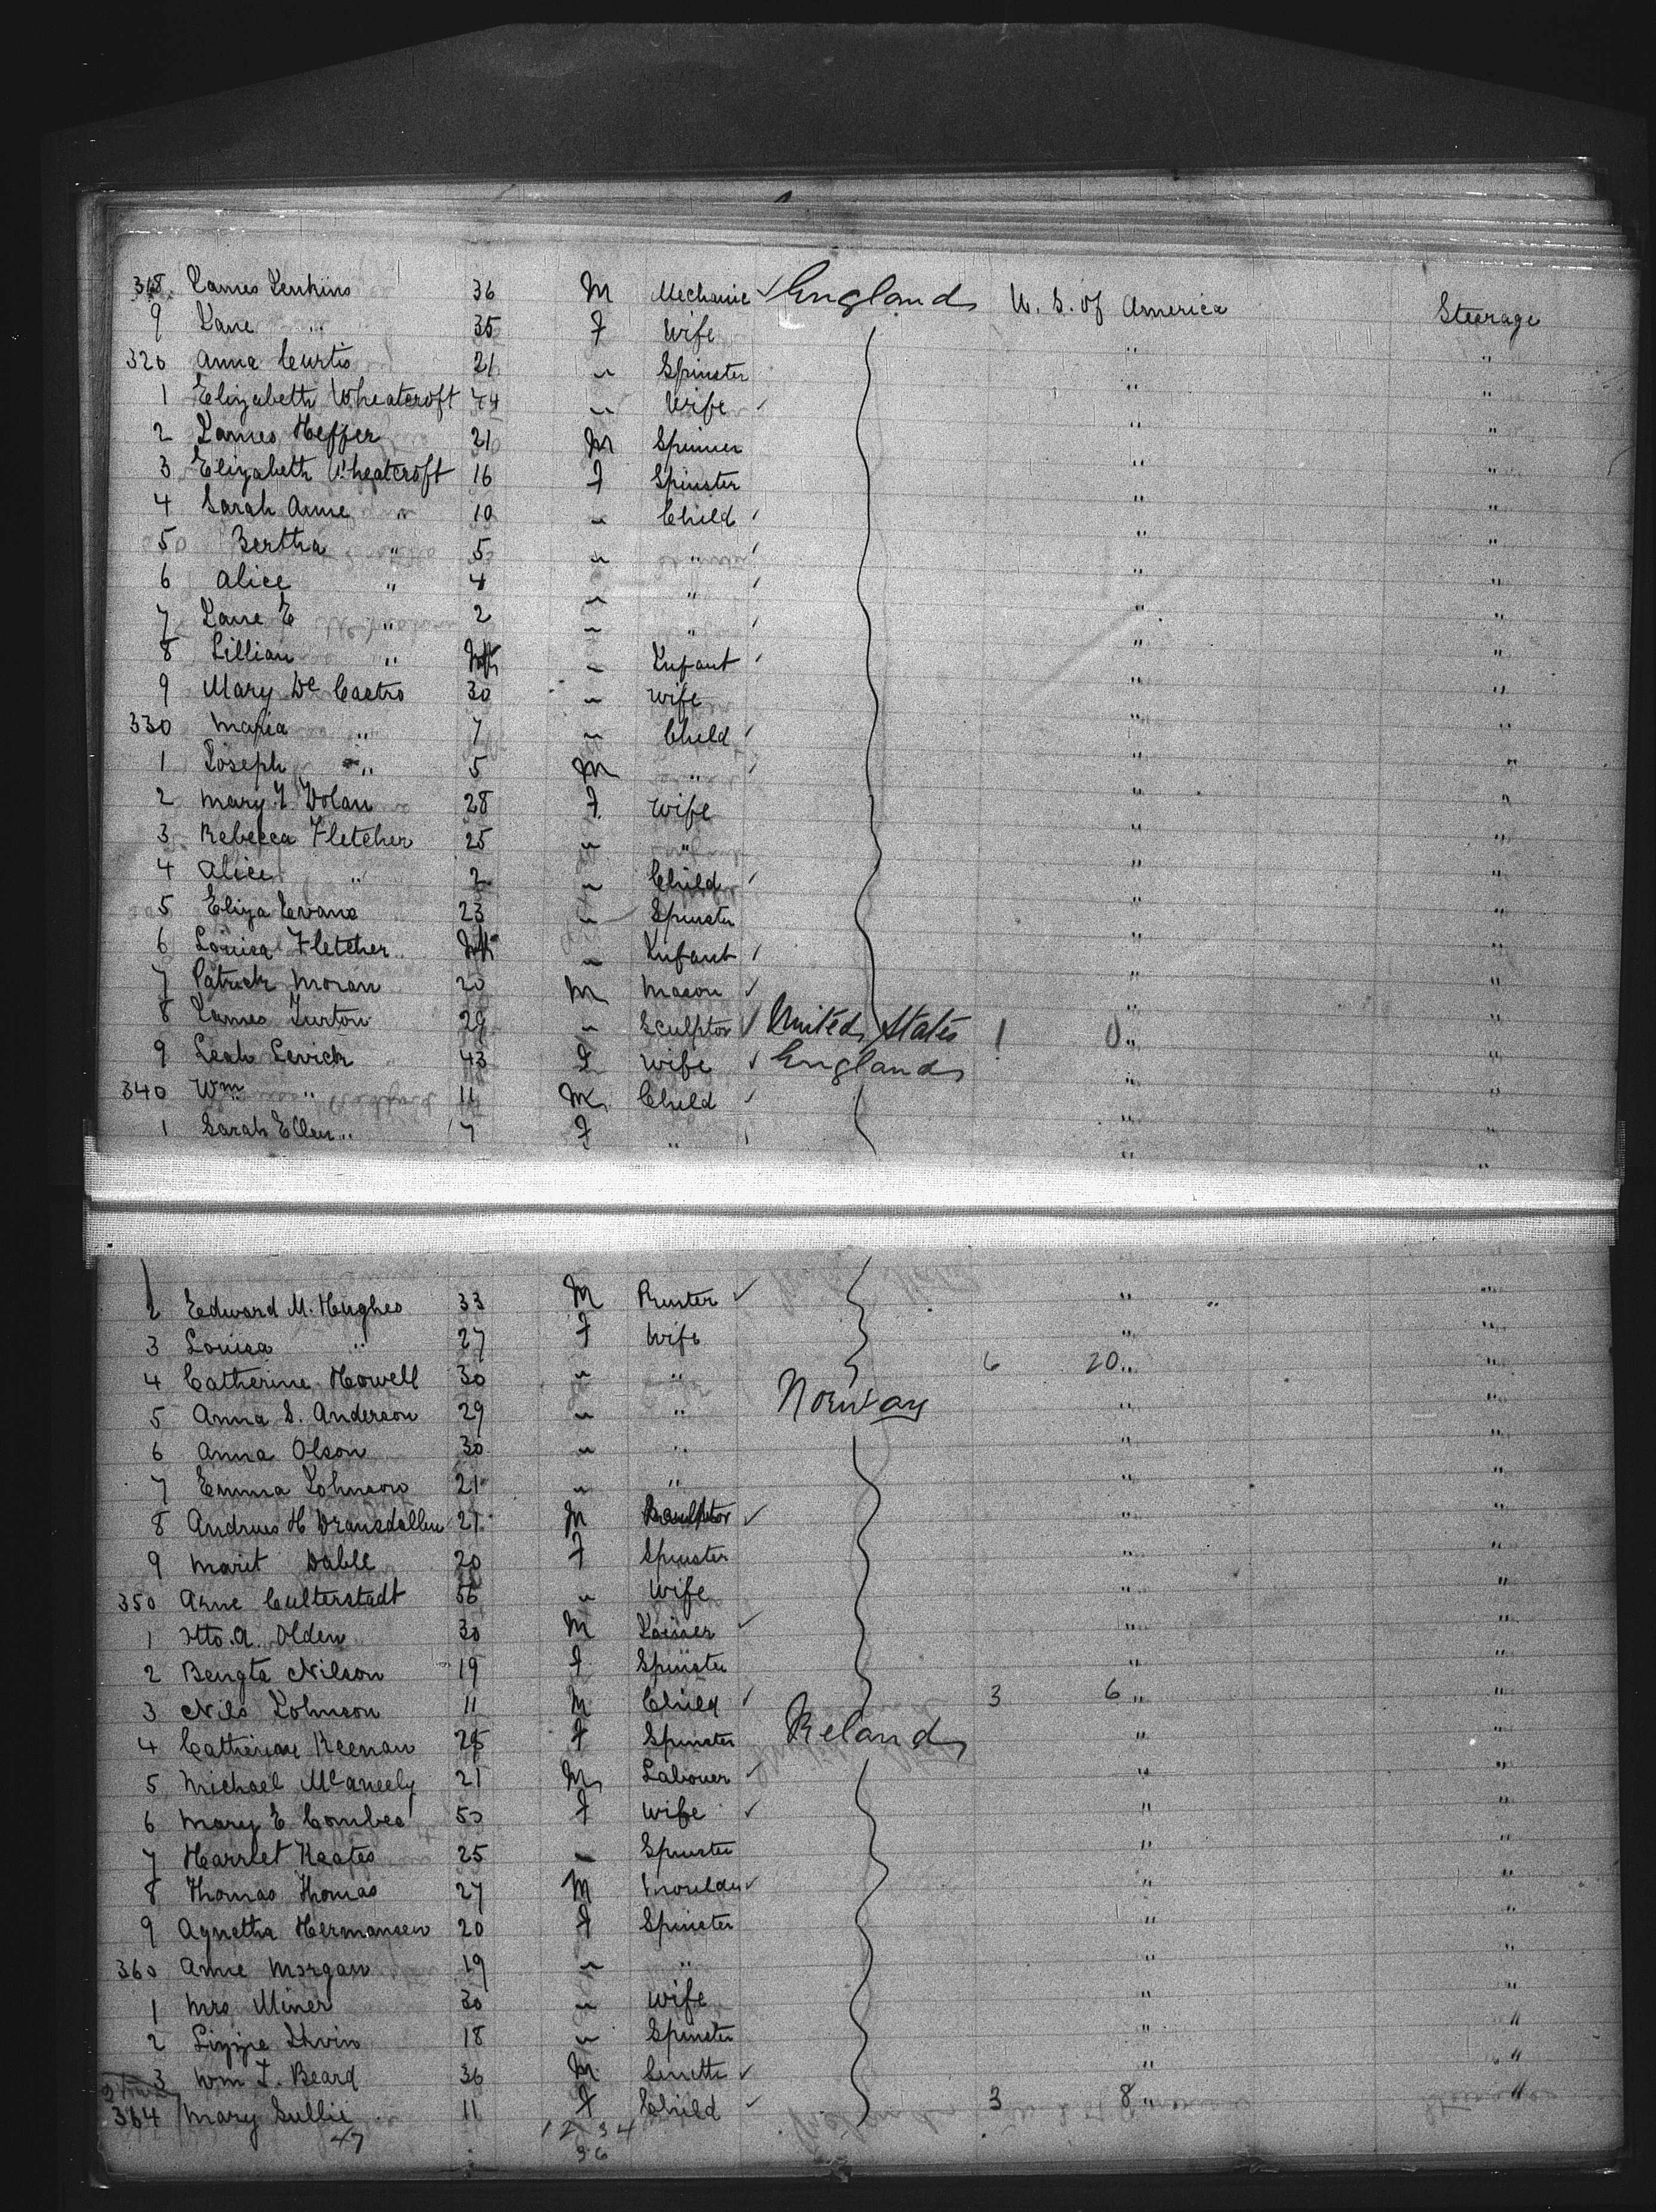 318 James Jenkins 36 M Mechanic ✓ England U. S. of America Steerage
9 Jane " 35 F Wife " "
320 Anna Curtis 21 " Spinster " "
1 Elizabeth Wheatcroft 44 " Wife ✓ " "
2 James Hepper 21 M Spinner " "
3 Elizabeth Wheatcroft 16 F Spinster " "
4 Sarah Anne " 10 " Child ✓ " "
5 Bertha " 5 " " ✓ " "
6 Alice " 4 " " ✓ " "
7 Jane E " 2 " " ✓ " "
8 Lillian " Inft " Infant ✓ " "
9 Mary De Castro 30 " Wife " "
330 Maria " 7 " Child ✓ " "
1 Joseph " 5 M " ✓ " "
2 Mary J. Dolan 28 F Wife " "
3 Rebecca Fletcher 25 " " " "
4 Alice " 2 " Child ✓ " "
5 Eliza Evans 23 " Spinster " "
6 Louisa Fletcher Inft " Infant ✓ " "
7 Patrick Moran 20 M Mason ✓ " "
8 James Turton 29 " Sculptor ✓ United States 1 0 " "
9 Leah Levick 43 F Wife ✓ England " "
340 Wm " 11 M Child ✓ " "
1 Sarah Ellen " 7 F " ✓ " "
2 Edward M. Hughes 33 M Printer ✓ " " "
3 Louisa " 27 F Wife " "
4 Catherine Howell 30 " " 6 20 " "
5 Anna S. Anderson 29 " " Norway " "
6 Anna Olson 30 " " " "
7 Emma Johnson 21 " " " "
8 Andrus H 21 M ✓ " "
9 Marit Dahle 20 F Spinster " "
350 Anne Culterstadt 56 " Wife " "
1 Otto A. Olden 30 M Joiner ✓ " "
2 Bengta Nilson 19 F Spinster " "
3 Nils Johnson 11 M Child ✓ 3 6 " "
4 Catherine Keenan 25 F Spinster Ireland " "
5 Michael McAneely 21 M Labouer ✓ " "
6 Mary E Combes 50 F Wife ✓ " "
7 Harriet Keates 25 " Spinster " "
8 Thomas Thomas 27 M Moulder ✓ " "
9 Agnetha Hermansen 20 F Spinster " "
360 Anne Morgan 19 " " " "
1 Mrs Miner 30 " Wife " "
2 Lizzie Irvin 18 " Spinster " "
3 Wm J. Beard 36 M ✓ " "
364 Mary Sullie 11 F Child ✓ 3 8 " "
47 12 34
36